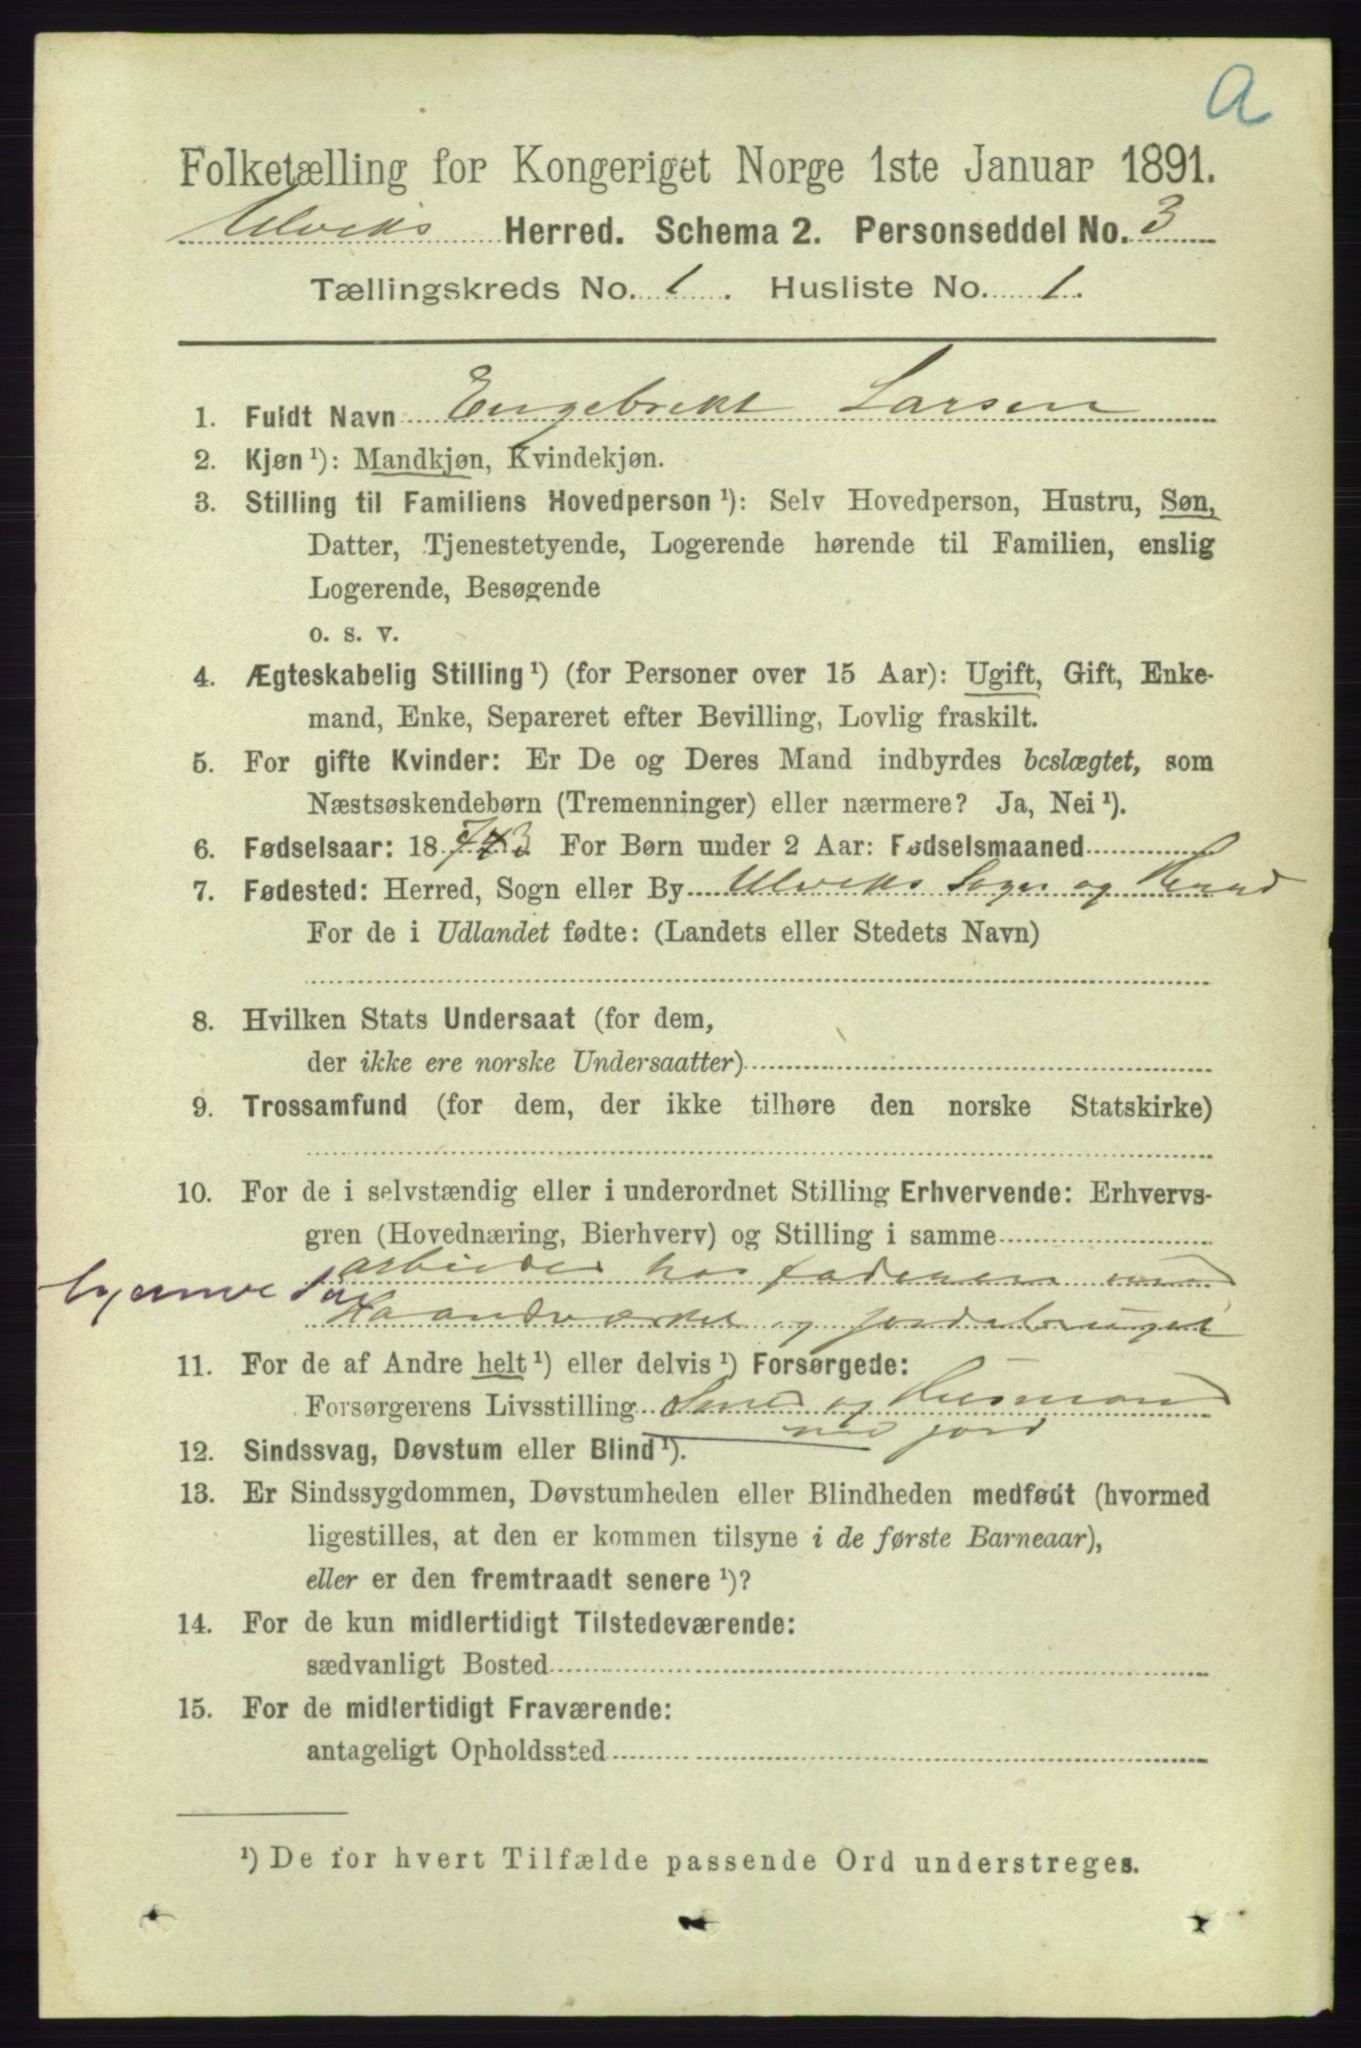 a
Folketælling for Kongeriget Norge 1ste Januar 1891.
Ulviks Herred. Schema 2. Personseddel No. 3
Tællingskreds No. 1. Husliste No. 1.
1. Fuldt Navn Engebrekt Larsen
2. Kjøn ¹): Mandkjøn, Kvindekjøn.
3. Stilling til Familiens Hovedperson ¹): Selv Hovedperson, Hustru, Søn,
Datter, Tjenestetyende, Logerende hørende til Familien, enslig
Logerende, Besøgende
o. s. v.
4. Ægteskabelig Stilling ¹) (for Personer over 15 Aar): Ugift, Gift, Enke-
mand, Enke, Separeret efter Bevilling, Lovlig fraskilt.
5. For gifte Kvinder: Er De og Deres Mand indbyrdes beslægtet, som
Næstsøskendebørn (Tremenninger) eller nærmere? Ja, Nei ¹).
6. Fødselsaar: 18 73 For Børn under 2 Aar: Fødselsmaaned
7. Fødested: Herred, Sogn eller By Ulviks Sogn og Herred
For de i Udlandet fødte: (Landets eller Stedets Navn)
8. Hvilken Stats Undersaat (for dem,
der ikke ere norske Undersaatter)
9. Trossamfund (for dem, der ikke tilhøre den norske Statskirke)
10. For de i selvstændig eller i underordnet Stilling Erhvervende: Erhvervs-
gren (Hovednæring, Bierhverv) og Stilling i samme
arbeider hos faderen med
hjemve søn
Haandværket og jordebruget
11. For de af Andre helt ¹) eller delvis ¹) Forsørgede:
Forsørgerens Livsstilling Smed og Husmand
med jord
12. Sindssvag, Døvstum eller Blind ¹).
13. Er Sindssygdommen, Døvstumheden eller Blindheden medfødt (hvormed
ligestilles, at den er kommen tilsyne i de første Barneaar),
eller er den fremtraadt senere ¹)?
14. For de kun midlertidigt Tilstedeværende:
sædvanligt Bosted
15. For de midlertidigt Fraværende:
antageligt Opholdssted
¹) De for hvert Tilfælde passende Ord understreges.